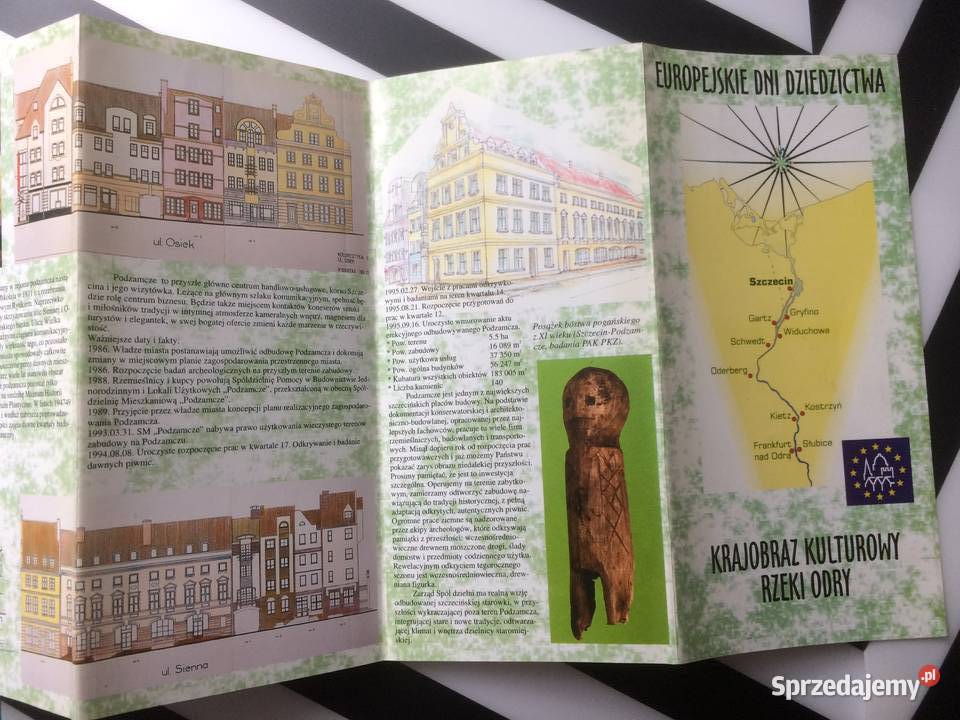 ul. Osiek
Podzamcze to przyszłe centrum handlowo-usługowe, korso Szcze-
cina i jego wizytówka. Leżące na głównym szlaku komunikacyjnym, spełniać bę-
dzie rolę centrum biznesu. Będzie także miejscem kontaktów koneserów sztuki
i miłośników tradycji w intymnej atmosferze kameralnych wnętrz, magnesem dla
turystów i elegantek, w swej bogatej ofercie zmieni każde marzenie w rzeczywi-
stość.
Ważniejsze daty i fakty:
1986. Władze miasta postanawiają umożliwić odbudowę Podzamcza i dokonują
zmiany w miejscowym planie zagospodarowania przestrzennego miasta.
1986. Rozpoczęcie badań archeologicznych na przyszłym terenie zabudowy
1988. Rzemieślnicy i kupcy powołują Spółdzielnię Pomocy w Budownictwie Jed-
norodzinnym i Lokali Użytkowych „Podzamcze", przekształconą w obecną Spół-
dzielnię Mieszkaniową „Podzamcze".
1989. Przyjęcie przez władze miasta koncepcji planu realizacyjnego zagospodaro-
wania Podzamcza.
1993.03.31. SM „Podzamcze" nabywa prawo użytkowania wieczystego terenów
zabudowy na Podzamczu.
1994.08.08. Uroczyste rozpoczęcie prac w kwartale 17. Odkrywanie i badanie
dawnych piwnic.
ul. Sienna
1995.02.27. Wejście z pracami odkrywko-
wymi i badaniami na teren kwartału 14.
1995.08.21. Rozpoczęcie przygotowań do
prac w kwartale 12.
1995.09.16. Uroczyste wmurowanie aktu
erekcyjnego odbudowywanego Podzamcza.
* Pow. terenu 5.5 ha
* Pow. zabudowy 16 089 m²
* Pow. użytkowa usług 37 350 m²
* Pow. ogólna budynków 56 247 m²
* Kubatura wszystkich obiektów 183 005 m³
* Liczba kamienic 140
Podzamcze jest jednym z największych
szczecińskich placów budowy. Na podstawie
dokumentacji konserwatorskiej i architekto-
niczno-budowlanej, opracowanej przez naj-
lepszych fachowców, pracuje tu wiele firm
rzemieślniczych, budowlanych i transporto-
wych. Minął dopiero rok od rozpoczęcia prac
przygotowawczych i już możemy Państwu
pokazać zarys obrazu niedalekiej przyszłości.
Prosimy pamiętać, że jest to inwestycja
szczególna. Operujemy na terenie zabytko-
wym, zamierzamy odtworzyć zabudowę na-
wiązującą do tradycji historycznej, z pełną
adaptacją odkrytych, autentycznych piwnic.
Ogromne prace ziemne są nadzorowane
przez ekipy archeologów, które odkrywają
pamiątki z przeszłości: wczesnośredniowieczne
drewnem moszczone drogi, ślady
domostw i przedmioty codziennego użytku.
Rewelacyjnym odkryciem tegorocznego
sezonu jest wczesnośredniowieczna, drew-
niana figurka.
Zarząd Spół dzielni ma realną wizję
odbudowanej szczecińskiej starówki, w przy-
szłości wykraczającej poza teren Podzamcza,
integrującej stare i nowe tradycje, odtwarza-
jącej klimat i wnętrza dzielnicy staromiej-
skiej.
Posążek bóstwa pogańskiego
z XI wieku (Szczecin-Podzam
cze, badania PAK PKZ).
EUROPEJSKIE DNI DZIEDZICTWA
Szczecin
Gryfino
Gartz
Widuchowa
Schwedt
Oderberg
Kostrzyń
Kietz
Frankfurt
nad Odrą
Słubice
KRAJOBRAZ KULTUROWY
RZEKI ODRY
Sprzedajemy.pl